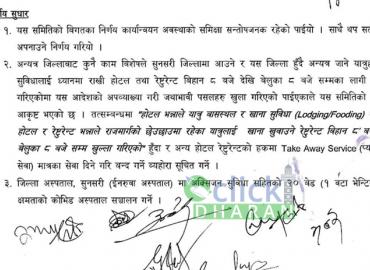 र्णय सुधार
१. यस समितिको विगतका निर्णय कार्यान्वयन अवस्थाको समिक्षा सन्तोषजनक रहेको पाईयो । साथै थप स
अपनाउने निर्णय गरियो ।
२. अन्यत्र जिल्लाबाट कुनै काम विशेषले सुनसरी जिल्लामा आउने र यस जिल्ला हुँदै अन्यत्र जाने यात्रुह
सुविधालाई ध्यानमा राखी होटल तथा रेष्टुरेन्ट बिहान ८ बजे देखि बेलुका ८ बजे सम्मका लागी
गरिएकोमा यस आदेशको अपव्याख्या गरी जथाभावी पसलहरु खुला गरिएको पाईएकाले यस समितिको
आकृष्ट भएको छ । तत्सम्बन्धमा "होटल भन्नाले यात्रु बासस्थल र खाना सुविधा (Lodging/Fooding)
होटल र रेष्टुरेन्ट भन्नाले राजमार्गको छेउछाउमा रहेका यात्रुलाई खाना खुवाउने रेष्टुरेन्ट बिहान ८ ब
बेलुका ८ बजे सम्म खुल्ला गरिएको" हुँदा र अन्य होटल रेष्टुरेन्टको हकमा Take Away Service (प्य
सेवा) मात्रका सेवा दिने गरि बन्द गर्ने व्यहोरा सूचित गर्ने ।
३. जिल्ला अस्पताल, सुनसरी (ईनरुवा अस्पताल) मा अक्सिजन सुविधा सहितको २० बेड (१ वटा भेन्टि
क्षमताको कोभिड अस्पताल सञ्चालन गर्ने ।
click
DHARAN